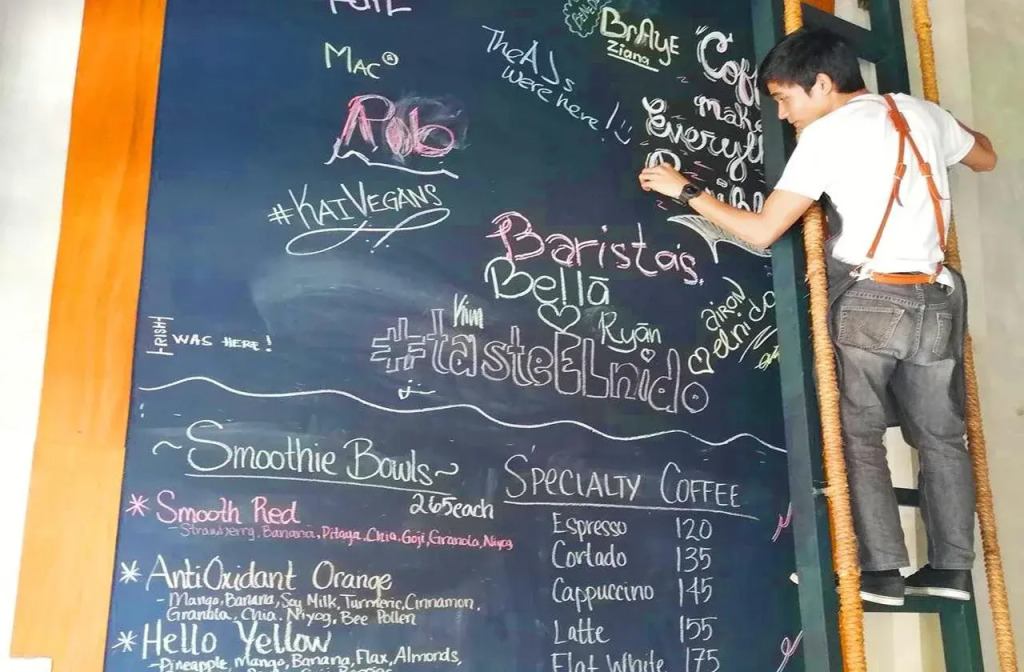 MAC®
Rob
#KAIVEGANS
FRISH WAS HERE!
The AJs
were here!
BrAYe
Ziana
"Coff
make
Everyth
Baristas
Bella
Kim
Ryan
#tasteELnido
AiRON
elnido
~Smoothie Bowls~
265each
* Smooth Red
- Strawberry, Banana, Pitaya, Chia, Goji, Granola, Niyog
* AntiOxidant Orange
- Mango, Banana, Soy Milk, Turmeric, Cinnamon,
Granola, Chia, Niyog, Bee Pollen
* Hello Yellow
- Pineapple, Mango, Banana, Flax, Almonds,
SPECIALTY COFFEE
Espresso 120
Cortado 135
Cappuccino 145
Latte 155
Flat White 175